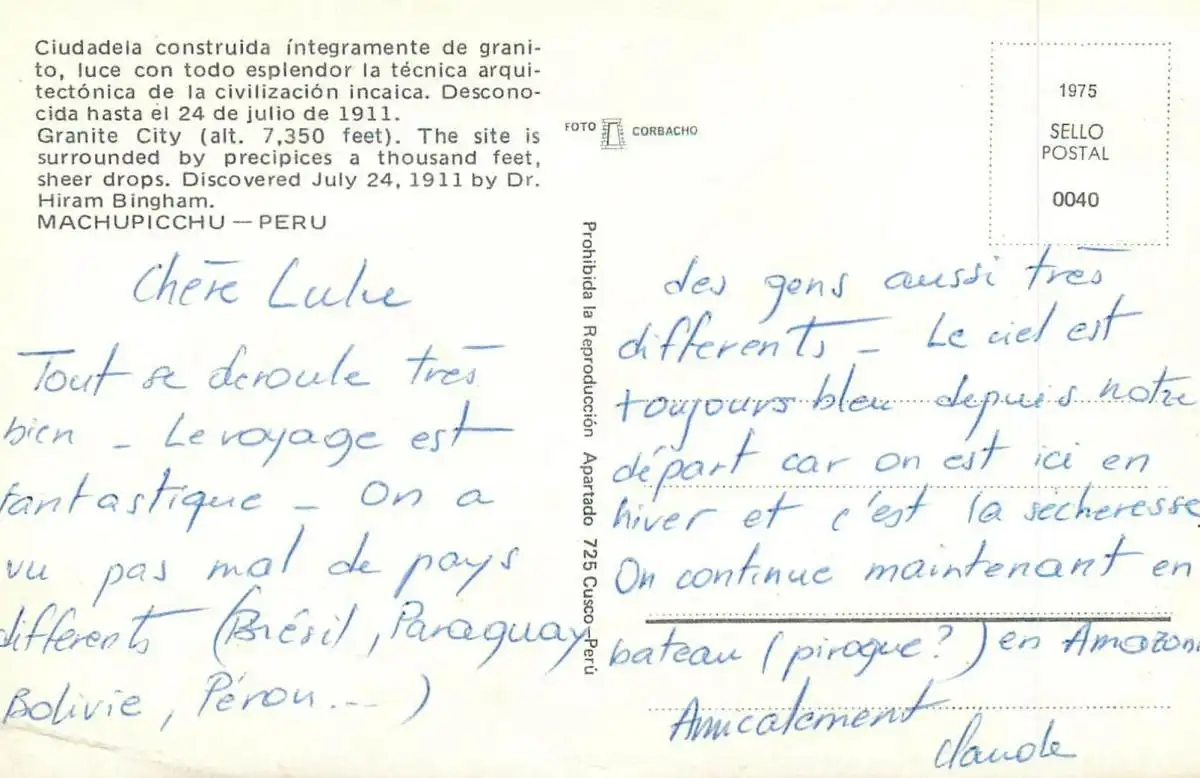 Ciudadela construida íntegramente de grani-
to, luce con todo esplendor la técnica arqui-
tectónica de la civilización incaica. Descono-
cida hasta el 24 de julio de 1911.
Granite City (alt. 7,350 feet). The site is
surrounded by precipices a thousand feet,
sheer drops. Discovered July 24, 1911 by Dr.
Hiram Bingham.
MACHUPICCHU — PERU
FOTO CORBACHO
1975
SELLO
POSTAL
0040
Prohibida la Reproducción Apartado 725 Cusco—Perú
Chère Lulu
Tout se déroule très
bien - Le voyage est
fantastique - On a
vu pas mal de pays
différents (Brésil, Paraguay
Bolivie, Pérou...)
des gens aussi très
différents - Le ciel est
toujours bleu depuis notre
départ car on est ici en
hiver et c'est la sécheresse
On continue maintenant en
bateau (pirogue?) en Amazoni
Amicalement
Claude